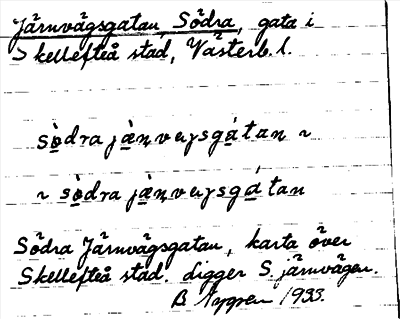 Järnvägsgatan, Södra, gata i
Skellefteå stad, Västerb. l.
sòdra jànvεγsgátan ~
~ sòdra jànvεγsgátan
Södra Järnvägsgatan, karta över
Skellefteå stad. Ligger S. järnvägen.
B Nygren 1933.